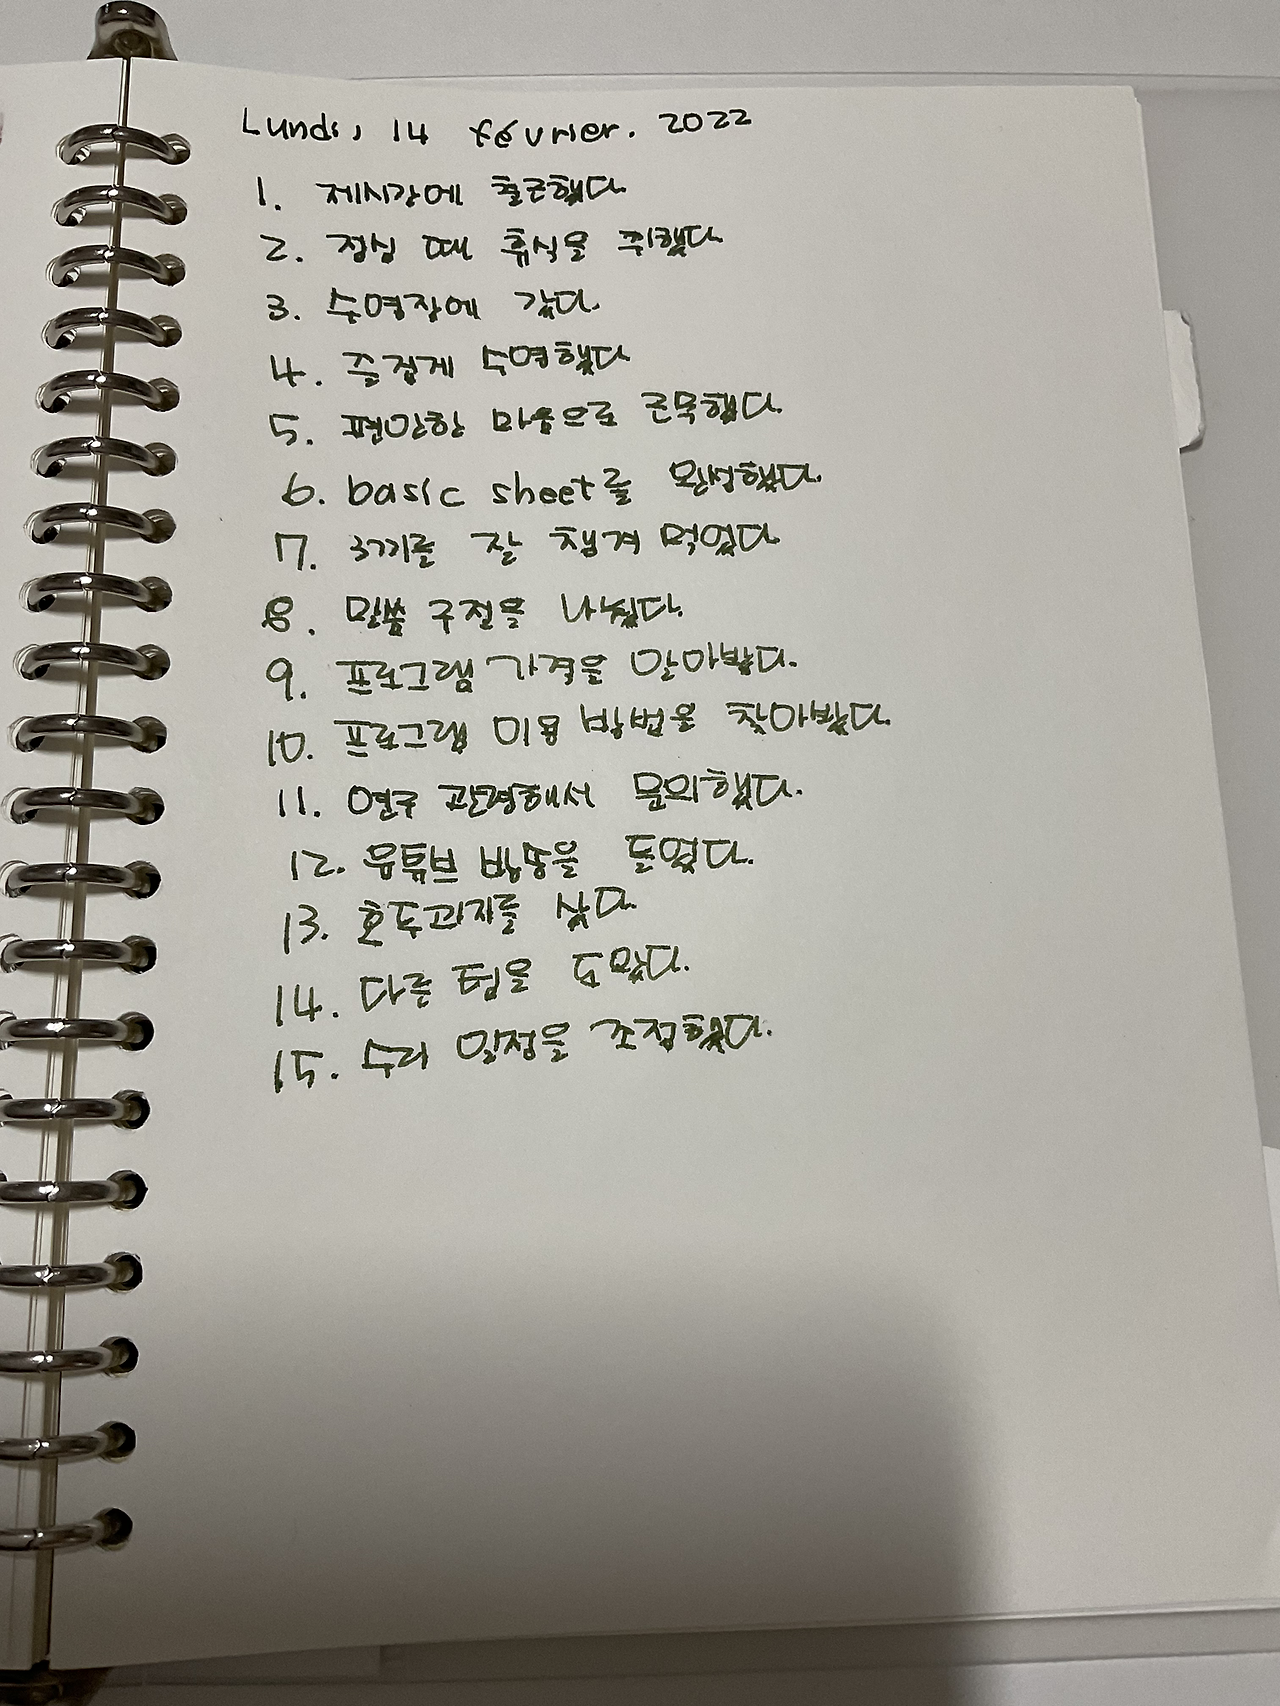 Lundi, 14 février. 2022
1. 제시간에 출근했다.
2. 점심 때 휴식을 취했다.
3. 수영장에 갔다.
4. 즐겁게 수영했다
5. 편안한 마음으로 근무했다.
6. basic sheet를 완성했다.
7. 3끼를 잘 챙겨 먹었다
8. 말씀 구절을 나눴다.
9. 프로그램 가격을 알아봤다.
10. 프로그램 이용 방법을 찾아봤다.
11. 연구 관련해서 문의했다.
12. 유튜브 방송을 들었다.
13. 호두과자를 샀다.
14. 다른 팀을 도왔다.
15. 수리 일정을 조정했다.